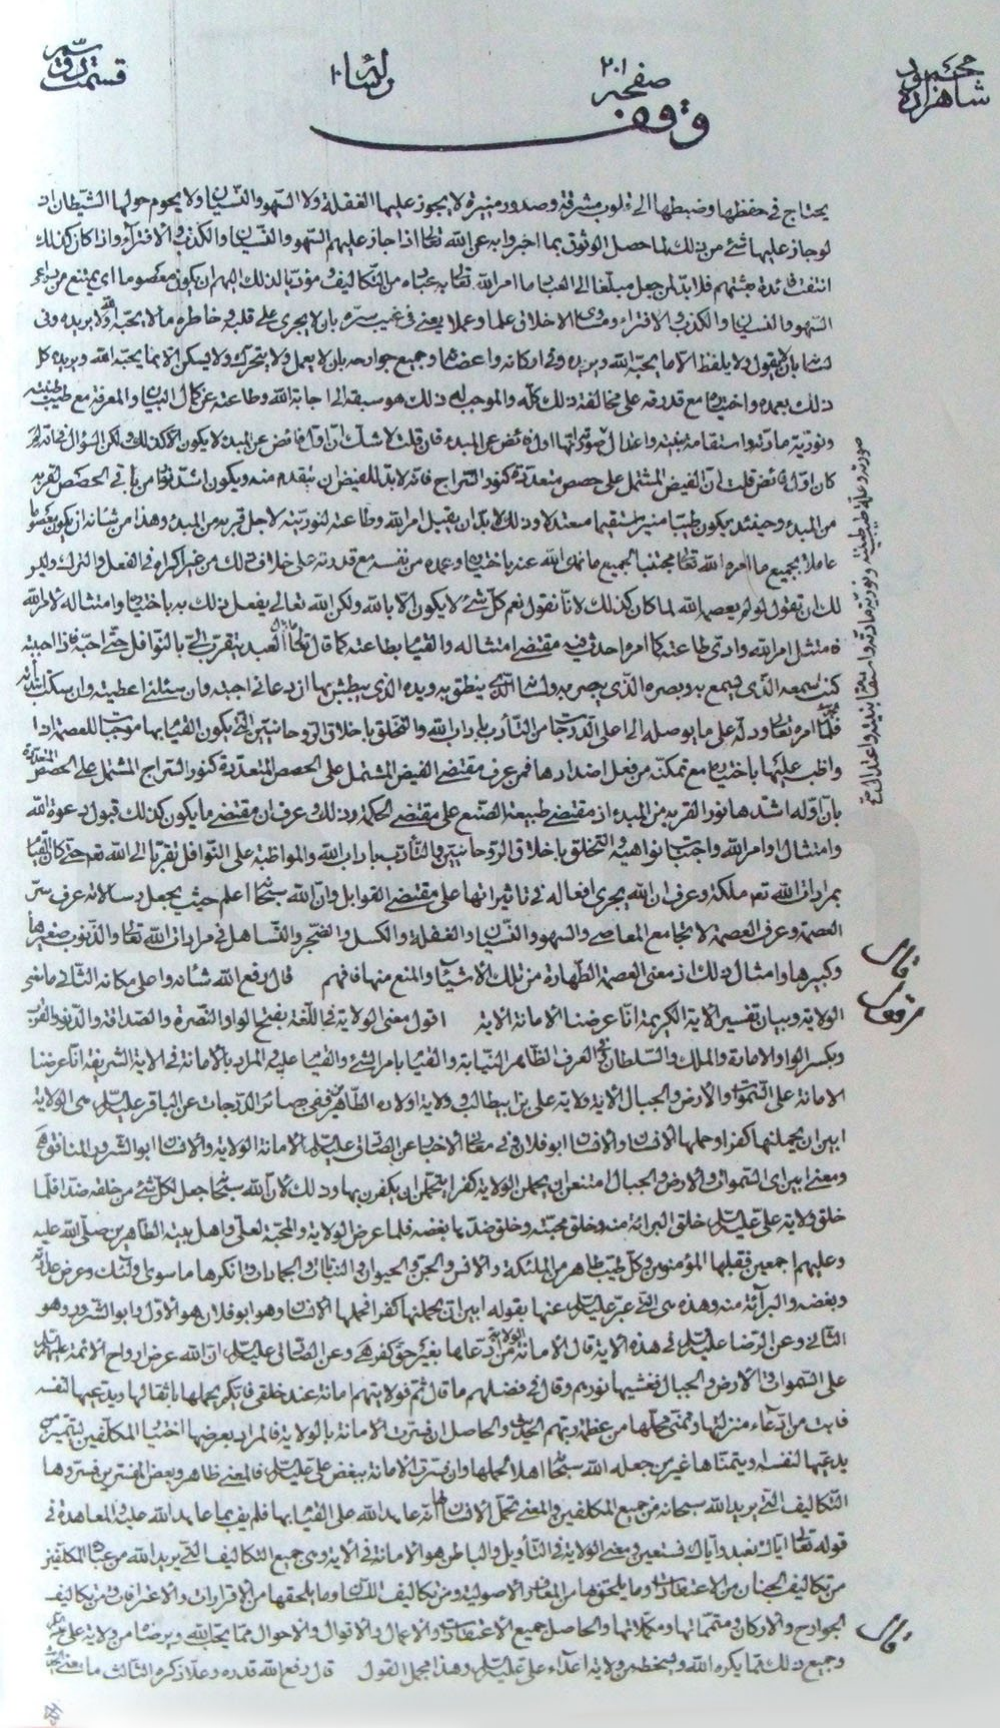 محمود شاهزاده
صفحه ٢٠١
رسالة ١٠
قسمت
وقف
يحتاج في حفظها وضبطها الى قلوب مشرقة وصدور منيرة لا يجوز عليها الغفلة ولا السهو والنسيان ولا يحوم حولها الشيطان اذ
لو جاز عليها شئ من ذلك لما حصل الوثوق بما اخبروا به عن الله تعالى اذا جاز عليهم السهو والنسيان والكذب والافتراء واذا كان كذلك
انتفت فائدة بعثتهم فلا بد لمن جعل مبلغا الى العباد ما امر الله تعالى به عباده من التكاليف ومؤديا لذلك اليهم ان يكون معصوما اى يمتنع من
السهو والنسيان والكذب والافتراء ومساوى الاخلاق علما وعملا يعنى في غيب سره بان لا يجرى على قلبه وخاطره ما لا يحبه الله ولا يريده وفى
لسانه بان لا يقول ولا يلفظ الا ما يحبه الله ويريده وفى اركانه واعضائه وجميع جوارحه بان لا يعمل ولا يتحرك ولا يسكن الا بما يحبه الله ويريده كل
ذلك بعمده واختياره مع قدرته على مخالفة ذلك كله والموجب له ذلك هو سبقه الى اجابة الله وطاعته عن كمال البيان والمعرفة مع طيب طينته
ونورية مادته واستقامة بنيته واعتدال صورته لانها اول فائض عن المبدء فان قلت لا شك ان اول فائض عن المبدء لا يكون الا كذلك ولكن السؤال فى انه لم
كان اول فائض قلت ان الفيض المشتمل على حصص متعددة كنور السراج فانه لا بد للفيض ان يتقدم منه ويكون اشد نورا من باقى الحصص لقربه
من المبدء وحينئذ يكون طيبا منيرا مستقيما معتدلا وذلك لا بد ان يقبل امر الله وطاعته لنوريته لاجل قربه من المبدء وهذا من شانه ان يكون معصوما
عاملا بجميع ما امره الله تعالى مجتنبا لجميع ما نهى الله عنه باختياره وعمده من نفسه مع قدرته على خلاف ذلك من غير اكراه فى الفعل والترك وليس
لك ان تقول لو لم يعصمه الله لما كان كذلك لانا نقول نعم كل شئ لا يكون الا بالله ولكن الله تعالى يفعل ذلك به باختياره وامتثاله لامر الله
فامتثل امر الله وادى طاعته كما امره احدث فيه مقتضى امتثاله والقيام بطاعته كما قال تعالى ما زال العبد يتقرب الى بالنوافل حتى احبه فاذا احببته
كنت سمعه الذى يسمع به وبصره الذى يبصر به ولسانه الذى ينطق به ويده الذى يبطش بها ان دعانى اجبته وان سئلنى اعطيته وان سكت ابتدأته
فلما امره تعالى ودله على ما يوصله الى اعلى الدرجات من التأدب باداب الله والتخلق باخلاق الروحانيين التى يكون القيام بها موجبا للعصمة اذا
واظب عليها باختياره مع تمكنه من فعل اضدادها فمن عرف مقتضى الفيض المشتمل على الحصص المتعددة كنور السراج المشتمل على الحصص المتعددة
بان اوله اشدها نورا لقربه من المبدء اذ مقتضى طبيعة الصنع على مقتضى الحكمة وذلك وعرف ان مقتضى ما يكون كذلك قبول دعوة الله
وامتثال اوامر الله واجتناب نواهيه والتخلق باخلاق الروحانيين والتأدب باداب الله والمواظبة على النوافل تقربا الى الله تعم حتى كان القيام
بمرادات الله تعم ملكة وعرف ان الله يجرى افعاله فى تاثيراتها على مقتضى القوابل وان الله سبحانه اعلم حيث يجعل رسالاته عرف سر
العصمة وعرف العصمة لا تجامع المعاصى والسهو والنسيان والغفلة والكسل والضجر والتساهل فى مرادات الله تعالى والذنوب صغيرها
وكبيرها وامثال ذلك اذ معنى العصمة الطهارة من تلك الاشياء والمنع منها فافهم قال رفع الله شانه واعلى مكانه الثانى ما معنى
الولاية وبيان تفسير الاية الكريمة انا عرضنا الامانة الاية اقول معنى الولاية فى اللغة بفتح الواو النصرة والصداقة والدنو والقرب
وبكسر الواو الامارة والملك والسلطان فى العرف الظاهر النيابة والقيام بامر الشئ والقيام عليه والمراد بالامانة فى الاية الشريفة انا عرضنا
الامانة على السموات والارض والجبال الاية ولاية على بن ابيطالب وولاية اولاده الطاهرين ففى بصائر الدرجات عن الباقر عليه السلام هى الولاية
ابين ان يحملنها كفرا وحملها الانسان والانسان ابو فلان وفى معانى الاخبار عن الصادق عليه السلام الامانة الولاية والانسان ابو الشرور المنافق هى
ومعنى ابين اى السموات والارض والجبال امتنعن ان يحملن الولاية كفرا يتحملن ان يكفرن بها وذلك لان الله سبحانه جعل لكل شئ من خلقه ضدا فلما
خلق ولاية على عليه السلام خلق البرائة منه وخلق محبته وخلق ضدها بغضه فلما عرض الولاية والمحبة لعلى واهل بيته الطاهرين صلى الله عليه
وعليهم اجمعين فقبلها المؤمنون وكل طيب طاهر من الملئكة والانس والجن والحيوان والنبات والجمادات وانكرها ما سوى اولئك وعرض عداوته
وبغضه والبرآئة منه وهذه هى التى عبر عليه السلام عنها بقوله ابين ان يحملنها كفرا فحملها الانسان وهو ابو فلان هو الاول وابو الشرور وهو
الثانى وعن الرضا عليه السلام فى هذه الاية قال الامانة الولاية من ادعاها بغير حق كفر هى وعن الصادق عليه السلام ان الله عرض ارواح الائمة عليهم السلام
على السموات والارض والجبال فغشيها نورهم وقال فى فضلهم ما قال ثم فولايتهم امانة عند خلقى فايكم يحملها باثقالها ويدعيها لنفسه
فابت من ادعاء منزلتها وتمنى محلها من عظمة ربهم الحديث والحاصل ان فسرت الامانة بالولاية فالمراد بعرضها اختبار المكلفين ليتميز من
يدعيها لنفسه ويتمناها غير من جعله الله سبحانه اهلا لحملها وان فسرت الامانة ببغض على عليه السلام فالمعنى ظاهر وبعض المفسرين فسروها
التكاليف التى يريد الله سبحانه من جميع المكلفين والمعنى تحمل الانسان لها انه عاهد الله على القيام بها فلم يف بما عاهد الله عليه والمعاهدة فى
قوله تعالى اياك نعبد واياك نستعين ومعنى الولاية فى التأويل والباطن هو الامانة فى الاية وهى جميع التكاليف التى يريد الله من عباده المكلفين
من تكاليف الجنان من الاعتقادات وما يلحقها من المعارف الاصولية ومن تكاليف اللسان وما يلحقها من الاقرارات والاعترافات ومن تكاليف
الجوارح والاركان ومتمماتها ومكملاتها والحاصل جميع الاعتقادات والاعمال والاقوال والاحوال مما يحب الله ويرضاه من ولاية على
وجميع ذلك مما يكره الله ويسخطه من ولاية اعداء على عليه السلام وهذا مجمل القول قال رفع الله قدره وعلا ذكره الثالث ما معنى
قال
مرفوع
قال